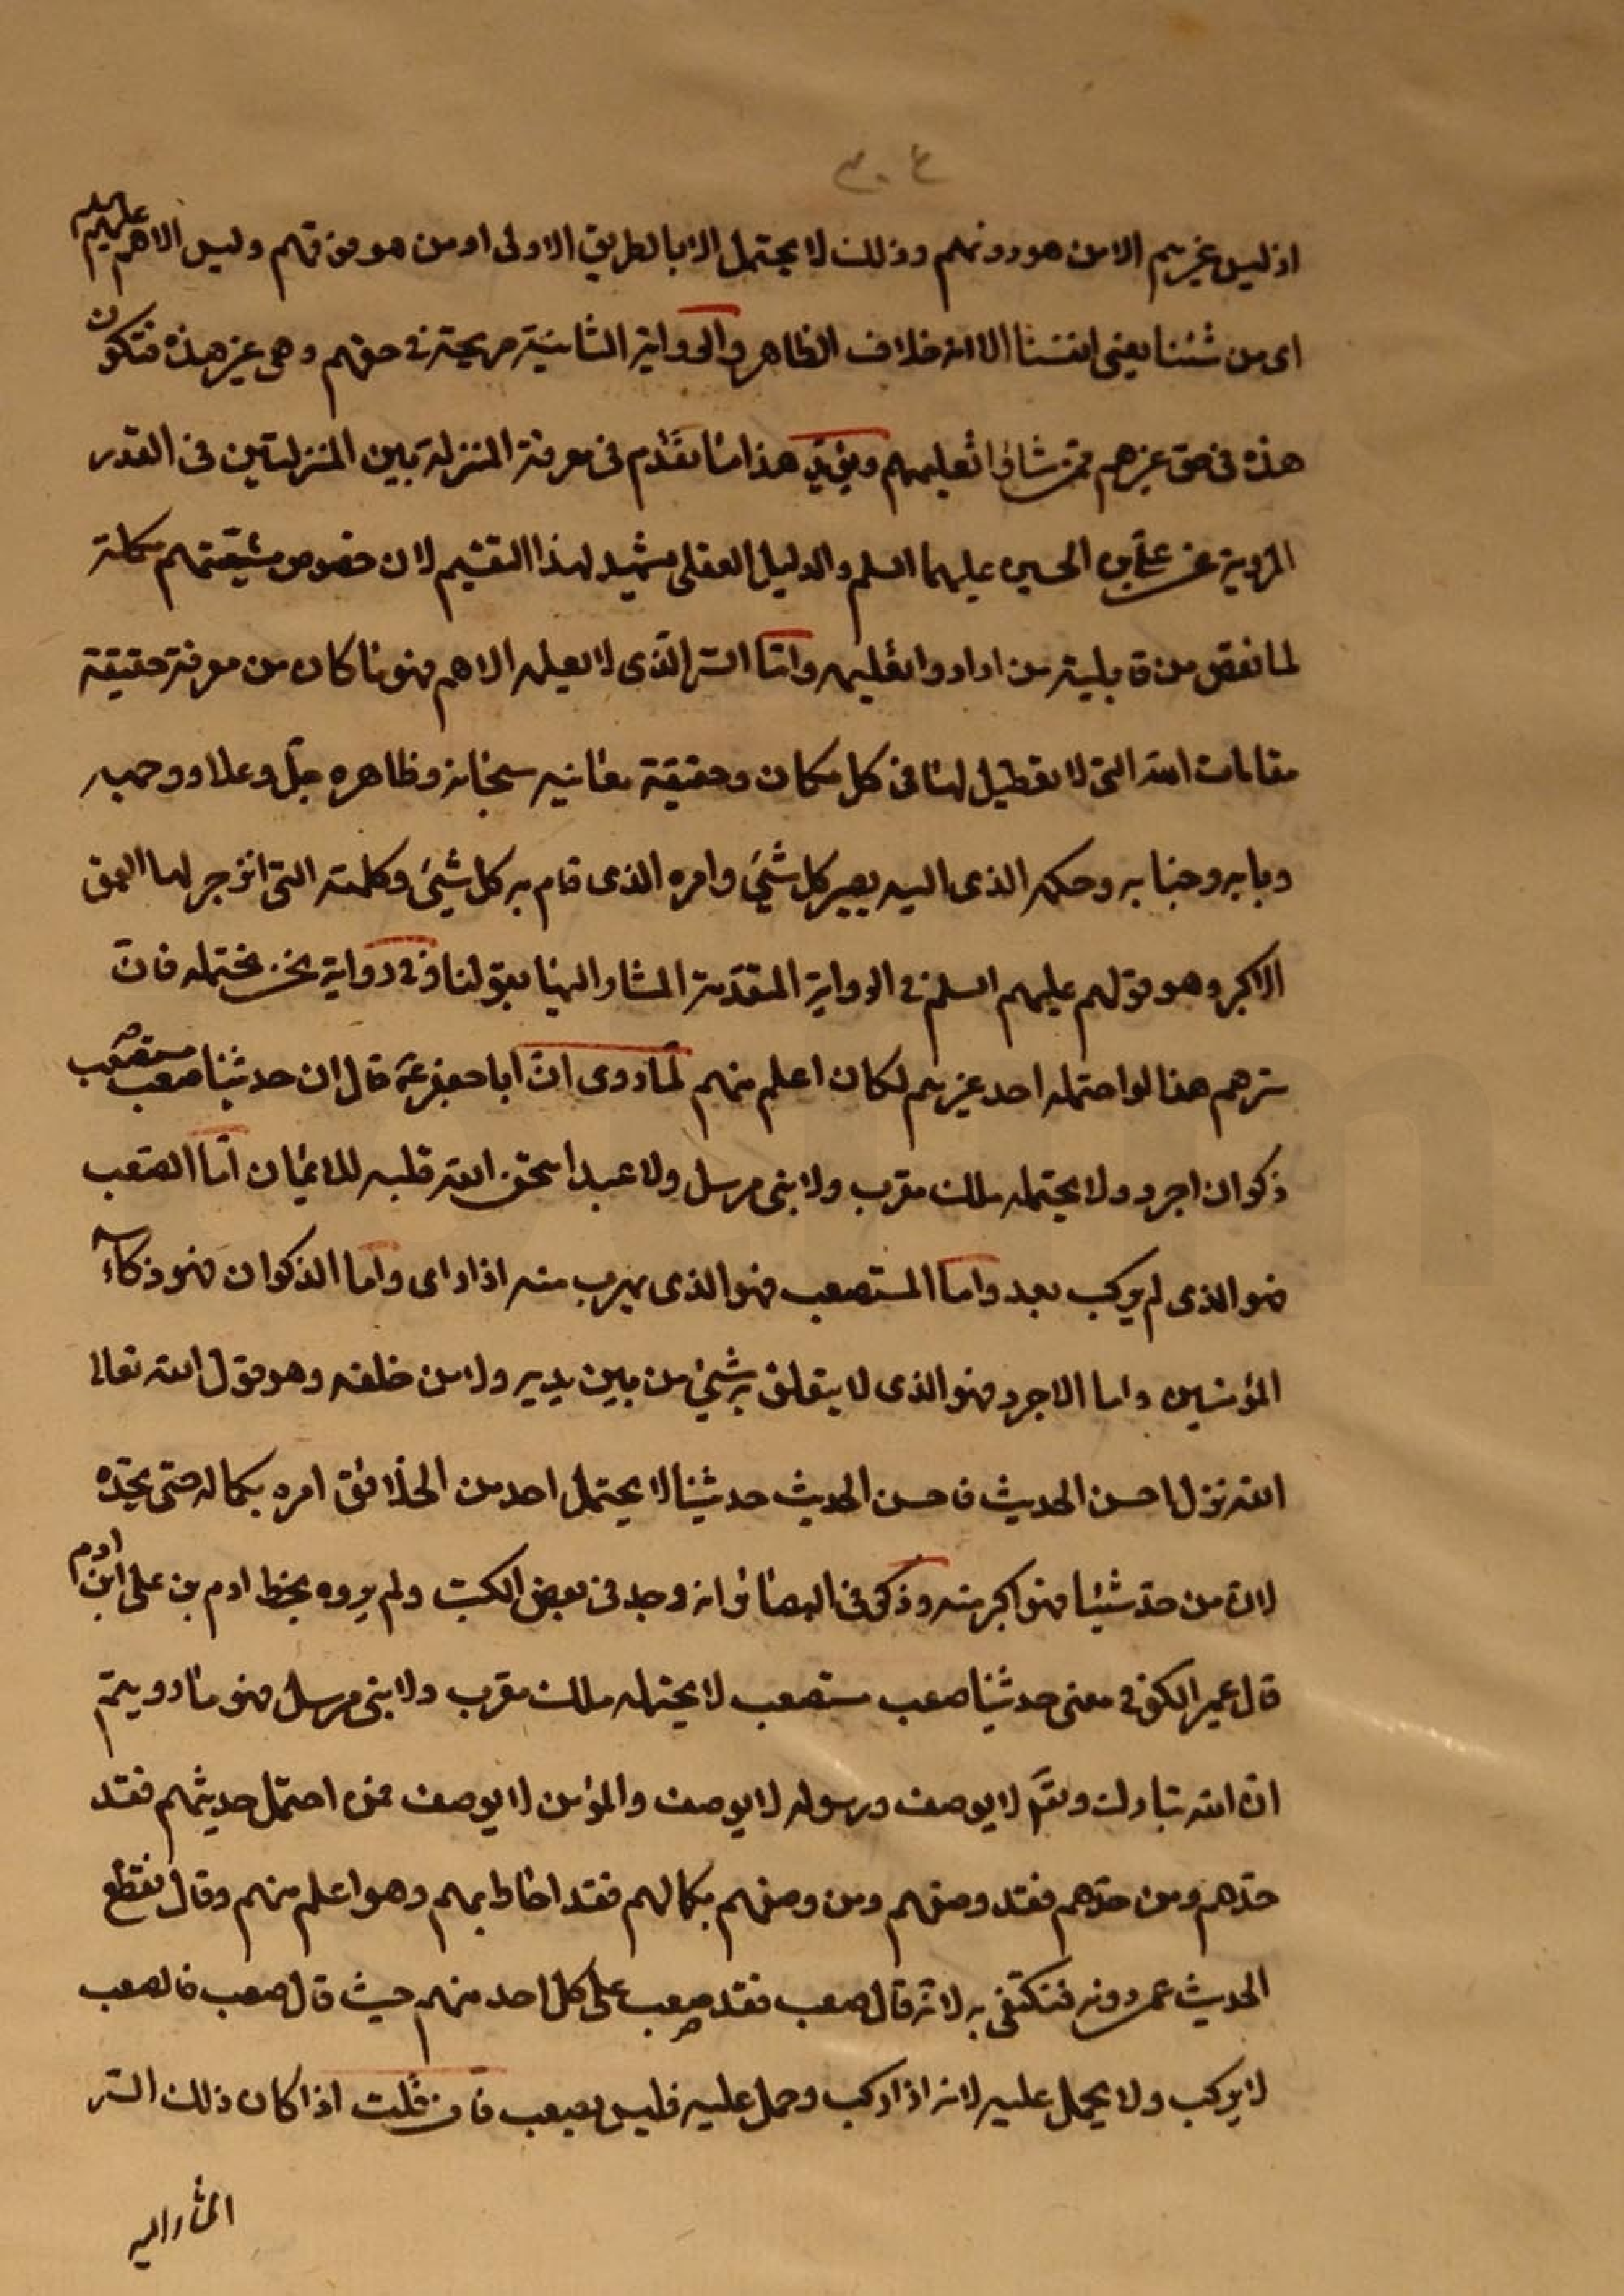 ٣٠٤
اذ ليس غيرهم الا من هو دونهم وذلك لا يحتمل الا بالطريق الاولى او من هو فوقهم وليس الا هم عليهم السلم
اى من شئنا يعنى انفسنا الا انه خلاف الظاهر والرواية الثانية صريحة فى حقهم وهى غير هذه فتكون
هذه فى حق غيرهم ممن شاؤا تعليمهم ويؤيد هذا ما تقدم فى معرفة المنزلة بين المنزلتين فى القدر
المروية عن على بن الحسين عليهما السلم والدليل العقلى يشهد لهذا التقسيم لان خصوص مشيتهم مكملة
لما نقص من قابلية من ارادوا تعليمه وامّا السرّ الّذى لا يعلمه الا هم فهو ما كان من معرفة حقيقة
مقامات الله التى لا تعطيل لها فى كل مكان وحقيقة معانيه سبحانه وظاهره جلّ وعلا ووجهه
وبابه وجنابه وحكمه الذى اليه يصير كل شئ وامره الذى قام به كل شئ وكلمته التى انزجر لها العمق
الاكبر وهو قولهم عليهم السلم فى الرواية المتقدّمة المشار اليها بقولنا وفى رواية نحن نحتمله فانّ
سرهم هذا لو احتمله احد غيرهم لكان اعلم منهم لما روى انّ ابا جعفر ع قال ان حديثنا صعب مستصعب
ذكوان اجرد ولا يحتمله ملك مقرب ولا نبى مرسل ولا عبد امتحن الله قلبه للايمان امّا الصّعب
فهو الذى لم يركب بعد واما المستصعب فهو الذى يهرب منه اذا راى واما الذكوان فهو ذكاء
المؤمنين واما الاجرد فهو الذى لا يتعلق به شئ من بين يديه ولا من خلفه وهو قول الله تعالى
الله نزل احسن الحديث فاحسن الحديث حديثنا لا يحتمل احد من الخلائق امره بكماله حتى يحدّه
لانّ من حدّ شيئا فهو اكبر منه وذكر فى البصائر انه وجد فى بعض الكتب ولم يروه بخط ادم بن على ابن ادم
قال عمير الكوفى معنى حديثنا صعب مستصعب لا يحتمله ملك مقرب ولا نبى مرسل فهو ما رويتم
انّ الله تبارك وتعَ لا يوصف ورسوله لا يوصف والمؤمن لا يوصف فمن احتمل حديثهم فقد
حدّهم ومن حدّهم فقد وصفهم ومن وصفهم بكمالهم فقد احاط بهم وهو اعلم منهم وقال نقطع
الحديث عمن دونه فنكتفى به لانّه قال صعب فقد صعب على كل احد منهم حيث قال صعب فالصعب
لا يركب ولا يحمل عليه لانه اذا ركب وحمل عليه فليس بصعب فان قلت اذا كان ذلك السّر
المشار اليه